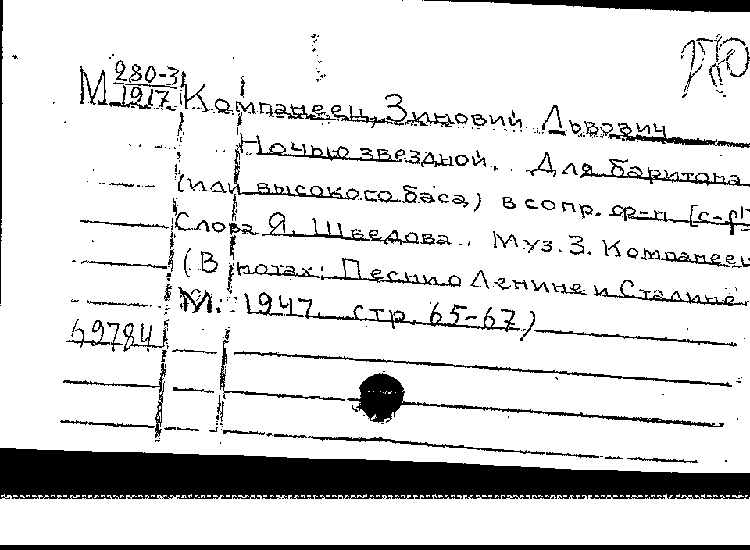 М 280-3/1917 Компанеец, Зиновий Львович
Ночью звездной. Для баритона
(или высокого баса) в сопр. ф-п. [c-f]
Слова Я. Шведова. Муз. З. Компанеец
(В нотах: Песни о Ленине и Сталине.
М. 1947. стр. 65-67)
69784